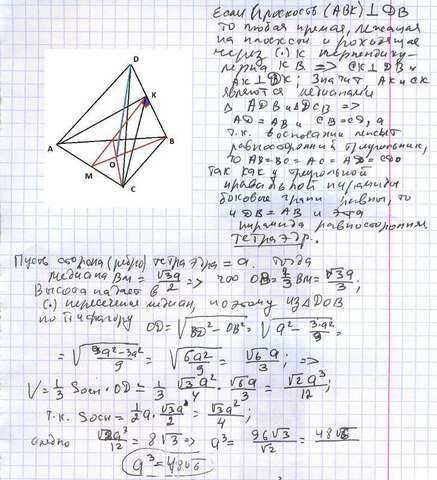 D
K
A
B
O
M
C
Если плоскость (ABK) ⊥ DB
то любая прямая, лежащая
на плоскости и проходящая
через (.) K перпендику-
лярна KB => CK ⊥ DB и
AK ⊥ DK; Значит AK и CK
являются медианами
Δ ADB и Δ DCB =>
AD = AB и CB = CD, а
т.к. в основании лежит
равносторонний треугольник,
то AB=BC=AC=AD=CD
так как у треугольной
правильной пирамиды
боковые грани равны, то
и DB = AB и эта
пирамида равносторонний
тетраэдр.
Пусть сторона (ребро) тетраэдра = a. Тогда
медиана BM = √3a/2 => OB = 2/3 BM = √3a/3;
Высота падает в
(.) пересечения медиан, поэтому из Δ DOB
по Пифагору OD = √(BD² - OB²) = √(a² - 3·a²/9) =
= √((9a² - 3a²)/9) = √(6a²/9) = √6a/3; =>
V = 1/3 Sосн · OD = 1/3 √3a²/4 · √6a/3 = √2a³/12;
т.к. Sосн = 1/2 a · √3a/2 = √3a²/4;
√2a³/12 = 8√3 => a³ = 96√3/√2 = 48√6
a³ = 48√6